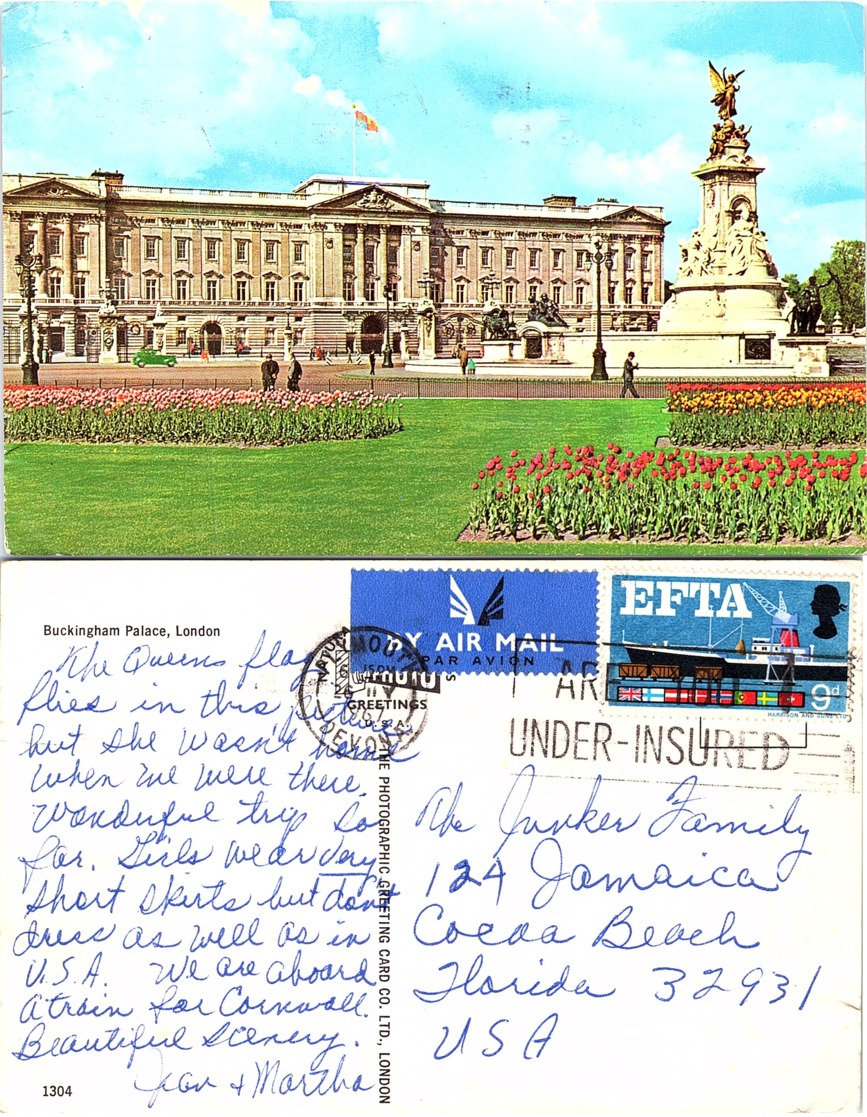 Buckingham Palace, London
The Queens flag
flies in this picture
but she wasn't home
when we were there.
Wonderful trip so
far. Girls wear very
short skirts but don't
dress as well as in
U.S.A. We are aboard
a train for Cornwall.
Beautiful Scenery.
Jean + Martha
1304
THE PHOTOGRAPHIC GREETING CARD CO. LTD., LONDON
BY AIR MAIL
PAR AVION
GREETINGS
U.S.A.
PLYMOUTH
DEVON
EFTA
9d
HARRISON AND SONS LTD
ARE YOU
UNDER-INSURED
The Junker Family
124 Jamaica
Cocoa Beach
Florida 32931
USA